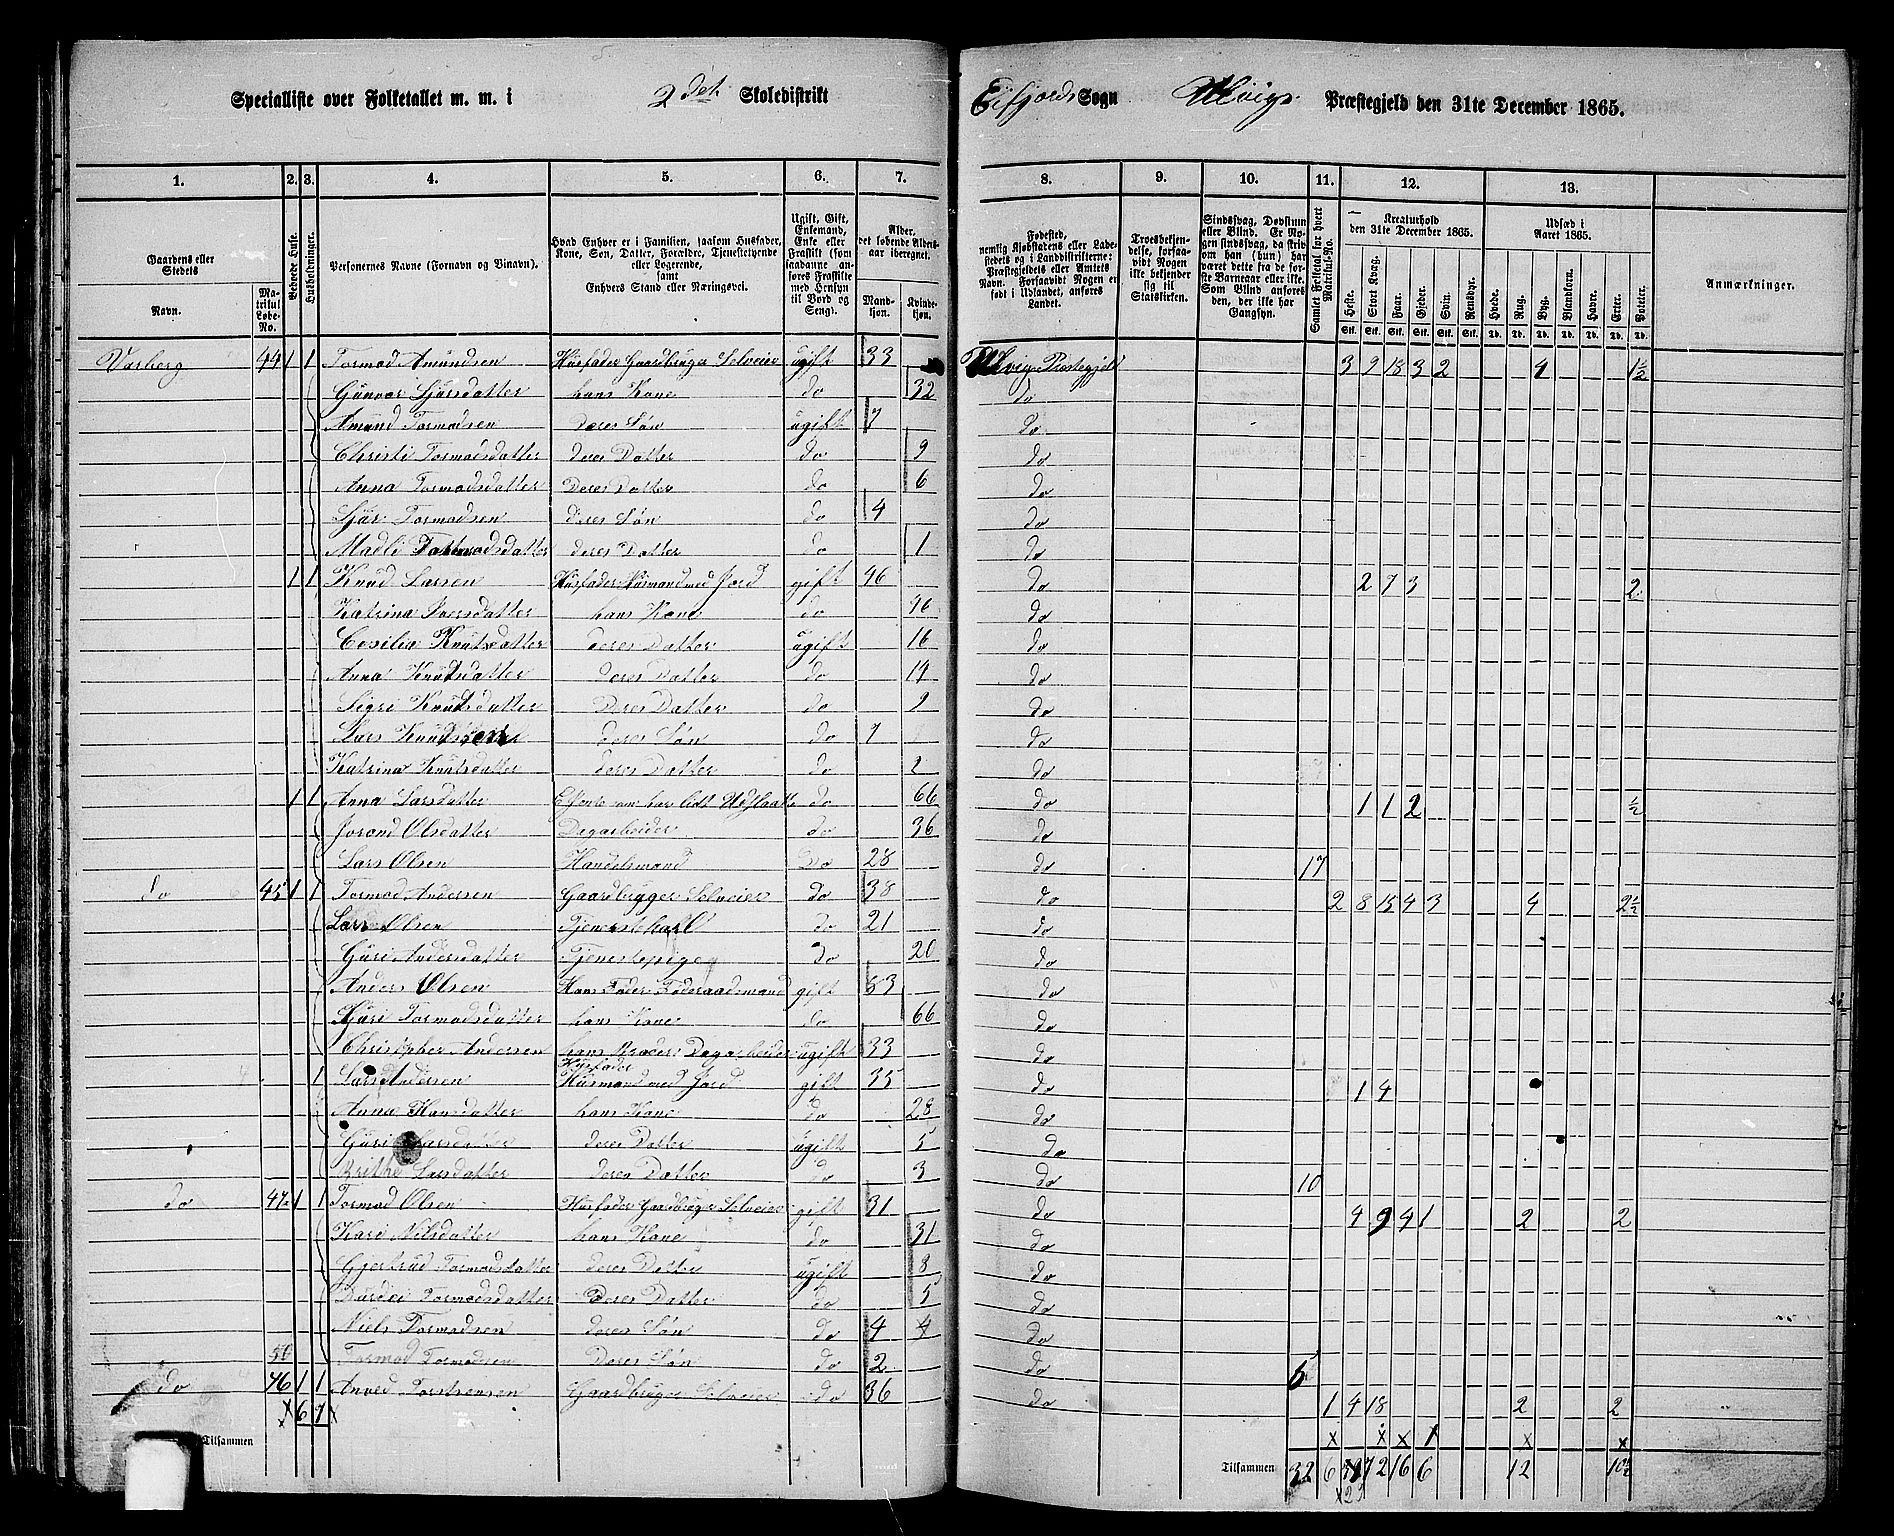 Specialliste over Folketallet m. m. i 2det Skoledistrikt Eifjords Sogn Ulvigs Præstegjeld den 31te December 1865.
1. 2. 3. 4. 5. 6. 7. 8. 9. 10. 11. 12. 13.
Gaardens eller Stedets
Navn.
Matrikul Løbe-No.
Beboede Huse.
Husholdninger.
Personernes Navne (Fornavn og Tilnavn).
Hvad Enhver er i Familien, saasom Husfader, Kone, Søn, Datter, Forældre, Tjenestetyende eller Logerende,
samt
Enhvers Stand eller Næringsvei.
Ugift, Gift, Enkemand, Enke eller Fraskilt (som saadanne anføres Fraskilte med Hensyn til Bord og Seng).
Alder, det løbende Aldersaar iberegnet.
Mandkjøn.
Kvindekjøn.
Fødested, nemlig Kjøbstadens eller Ladestedets og i Landdistrikterne: Præstegjeldets eller Amtets Navn. Forsaavidt Nogen er født i Udlandet, anføres Landet.
Troesbekjendelse, forsaavidt Nogen ikke bekjender sig til Statskirken.
Sindssvag, Døvstum eller Blind. Er Nogen sindssvag, da skrives om han (hun) har været dette fra de første Barneaar eller ikke. Som Blind opføres den, der ikke har Gangsyn.
Samlet Folketal for hvert Matrikul-No.
Kreaturhold den 31te December 1865.
Heste. Stort Kvæg. Faar. Gjeder. Svin. Rensdyr.
Udsæd i Aaret 1865.
Hvede. Rug. Byg. Blandkorn. Havre. Erter. Poteter.
Anmærkninger.
Varberg 44 1 1 Tormod Amundsen Husfader Gaardbruger Selveier gift 33 Ulvig Præstegjeld 3 9 18 3 2 4 1½
Gunvor Sjursdatter hans Kone do 32 do
Amund Tormodsen deres Søn ugift 7 do
Christi Tormodsdatter deres Datter do 9 do
Anna Tormodsdatter Deres Datter do 6 do
Sjur Tormodsen deres Søn do 4 do
Madli Tormodsdatter deres Datter do 1 do
1 1 Knud Larsen Husfader Husmand med Jord gift 46 do 2 7 3 2
Katrina Iversdatter hans Kone do 46 do
Cesilia Knutsdatter deres Datter ugift 16 do
Anna Knutsdatter deres Datter do 14 do
Sigri Knutsdatter Deres Datter do 9 do
Lars Knudsen deres Søn do 7 do
Katrina Knutsdatter deres Datter do 2 do
1 1 Anna Larsdatter do 66 do 1 1 2 ½
Jorand Olsdatter Dagarbeider do 36 do
Lars Olsen Handelsmand do 28 do 17
do 45 1 1 Tormod Andersen Gaardbruger Selveier do 38 do 2 8 15 4 3 4 2½
Lars Olsen Tjenestekarl do 21 do
Guri Andersdatter Tjenestepige do 20 do
Anders Olsen Hans Fader Føderaadsmand gift 83 do
Tormodsdatter hans Kone do 66 do
Christopher Andersen hans Broder: Dagarbeider ugift 33 do
1 Lars Andersen Husfader Husmand med Jord gift 35 do 1 4
Anna Hansdatter hans Kone do 28 do
Guri Larsdatter deres Datter ugift 5 do
Brithe Larsdatter deres Datter do 3 do 10
do 47 1 1 Tormod Olsen Husfader Gaardbruger Selveier gift 31 do 4 9 4 1 2 2
Kari Nilsdatter hans Kone do 31 do
Gjertrud Tormodsdatter deres Datter ugift 8 do
Durdei Tormodsdatter Deres Datter do 5 do
Niels Tormodsen deres Søn do 4 4 do
Tormod Tormodsen Deres Søn do 2 do 6
do 46 1 1 Torstensen Gaardbruger Selveier do 36 do 1 4 18 2 2
x 6 7 x x x x 1 x x
Tilsammen Tilsammen 32 6 72 16 6 12 10½